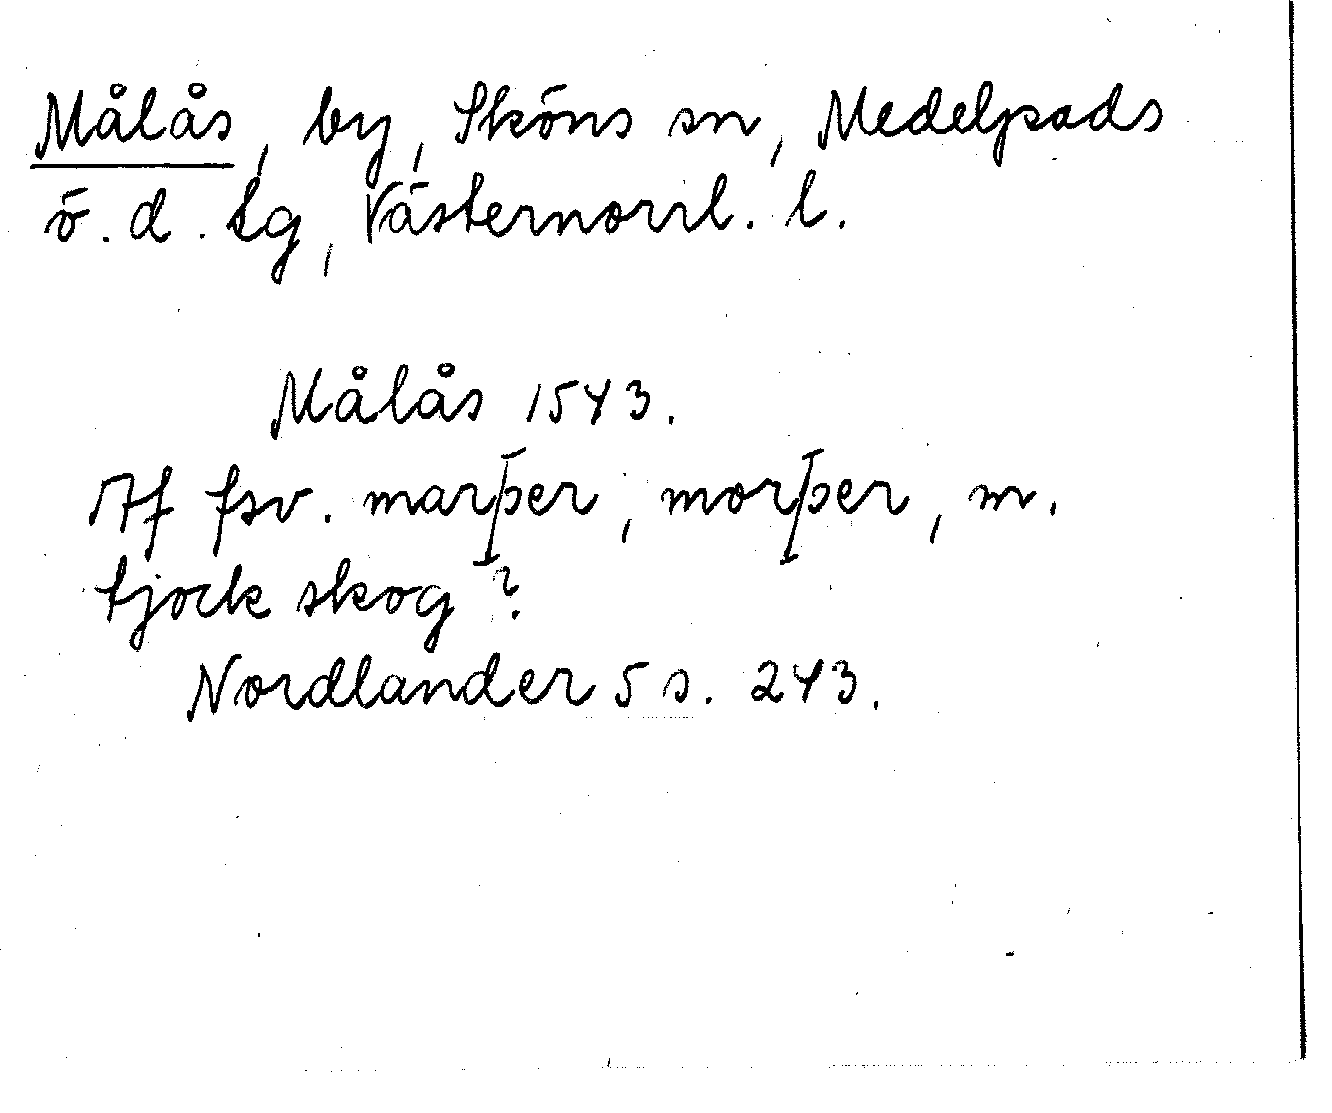 Målås, by, Sköns sn, Medelpads
ö. d. tg, Västernorrl. l.
Målås 1543.
Af fsv. marþer, morþer, m.
tjock skog?
Nordlander 5 s. 243.